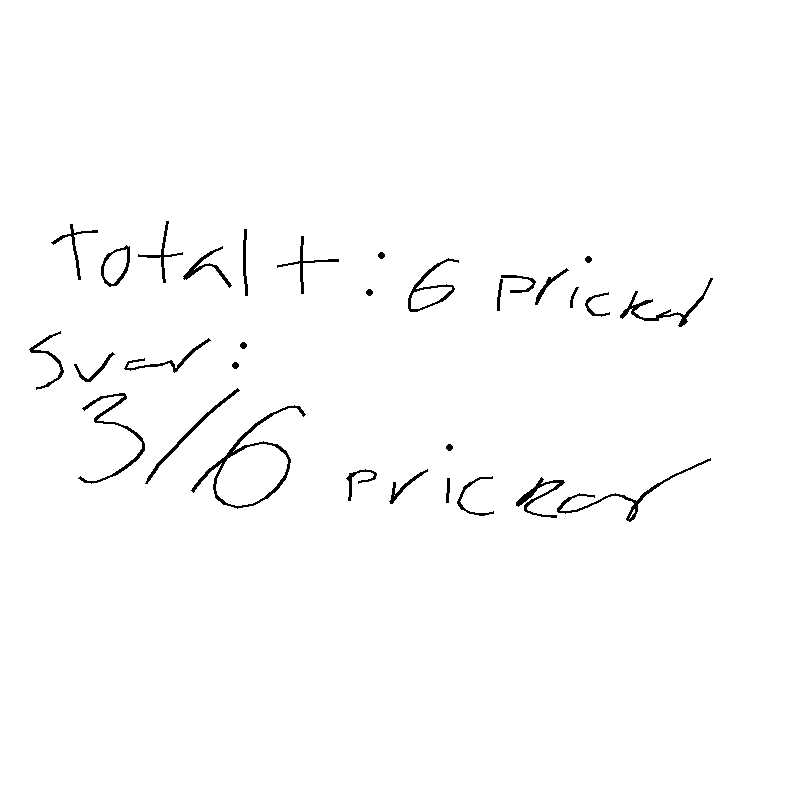 Totalt: 6 prickar
Svar:
3/6 prickar